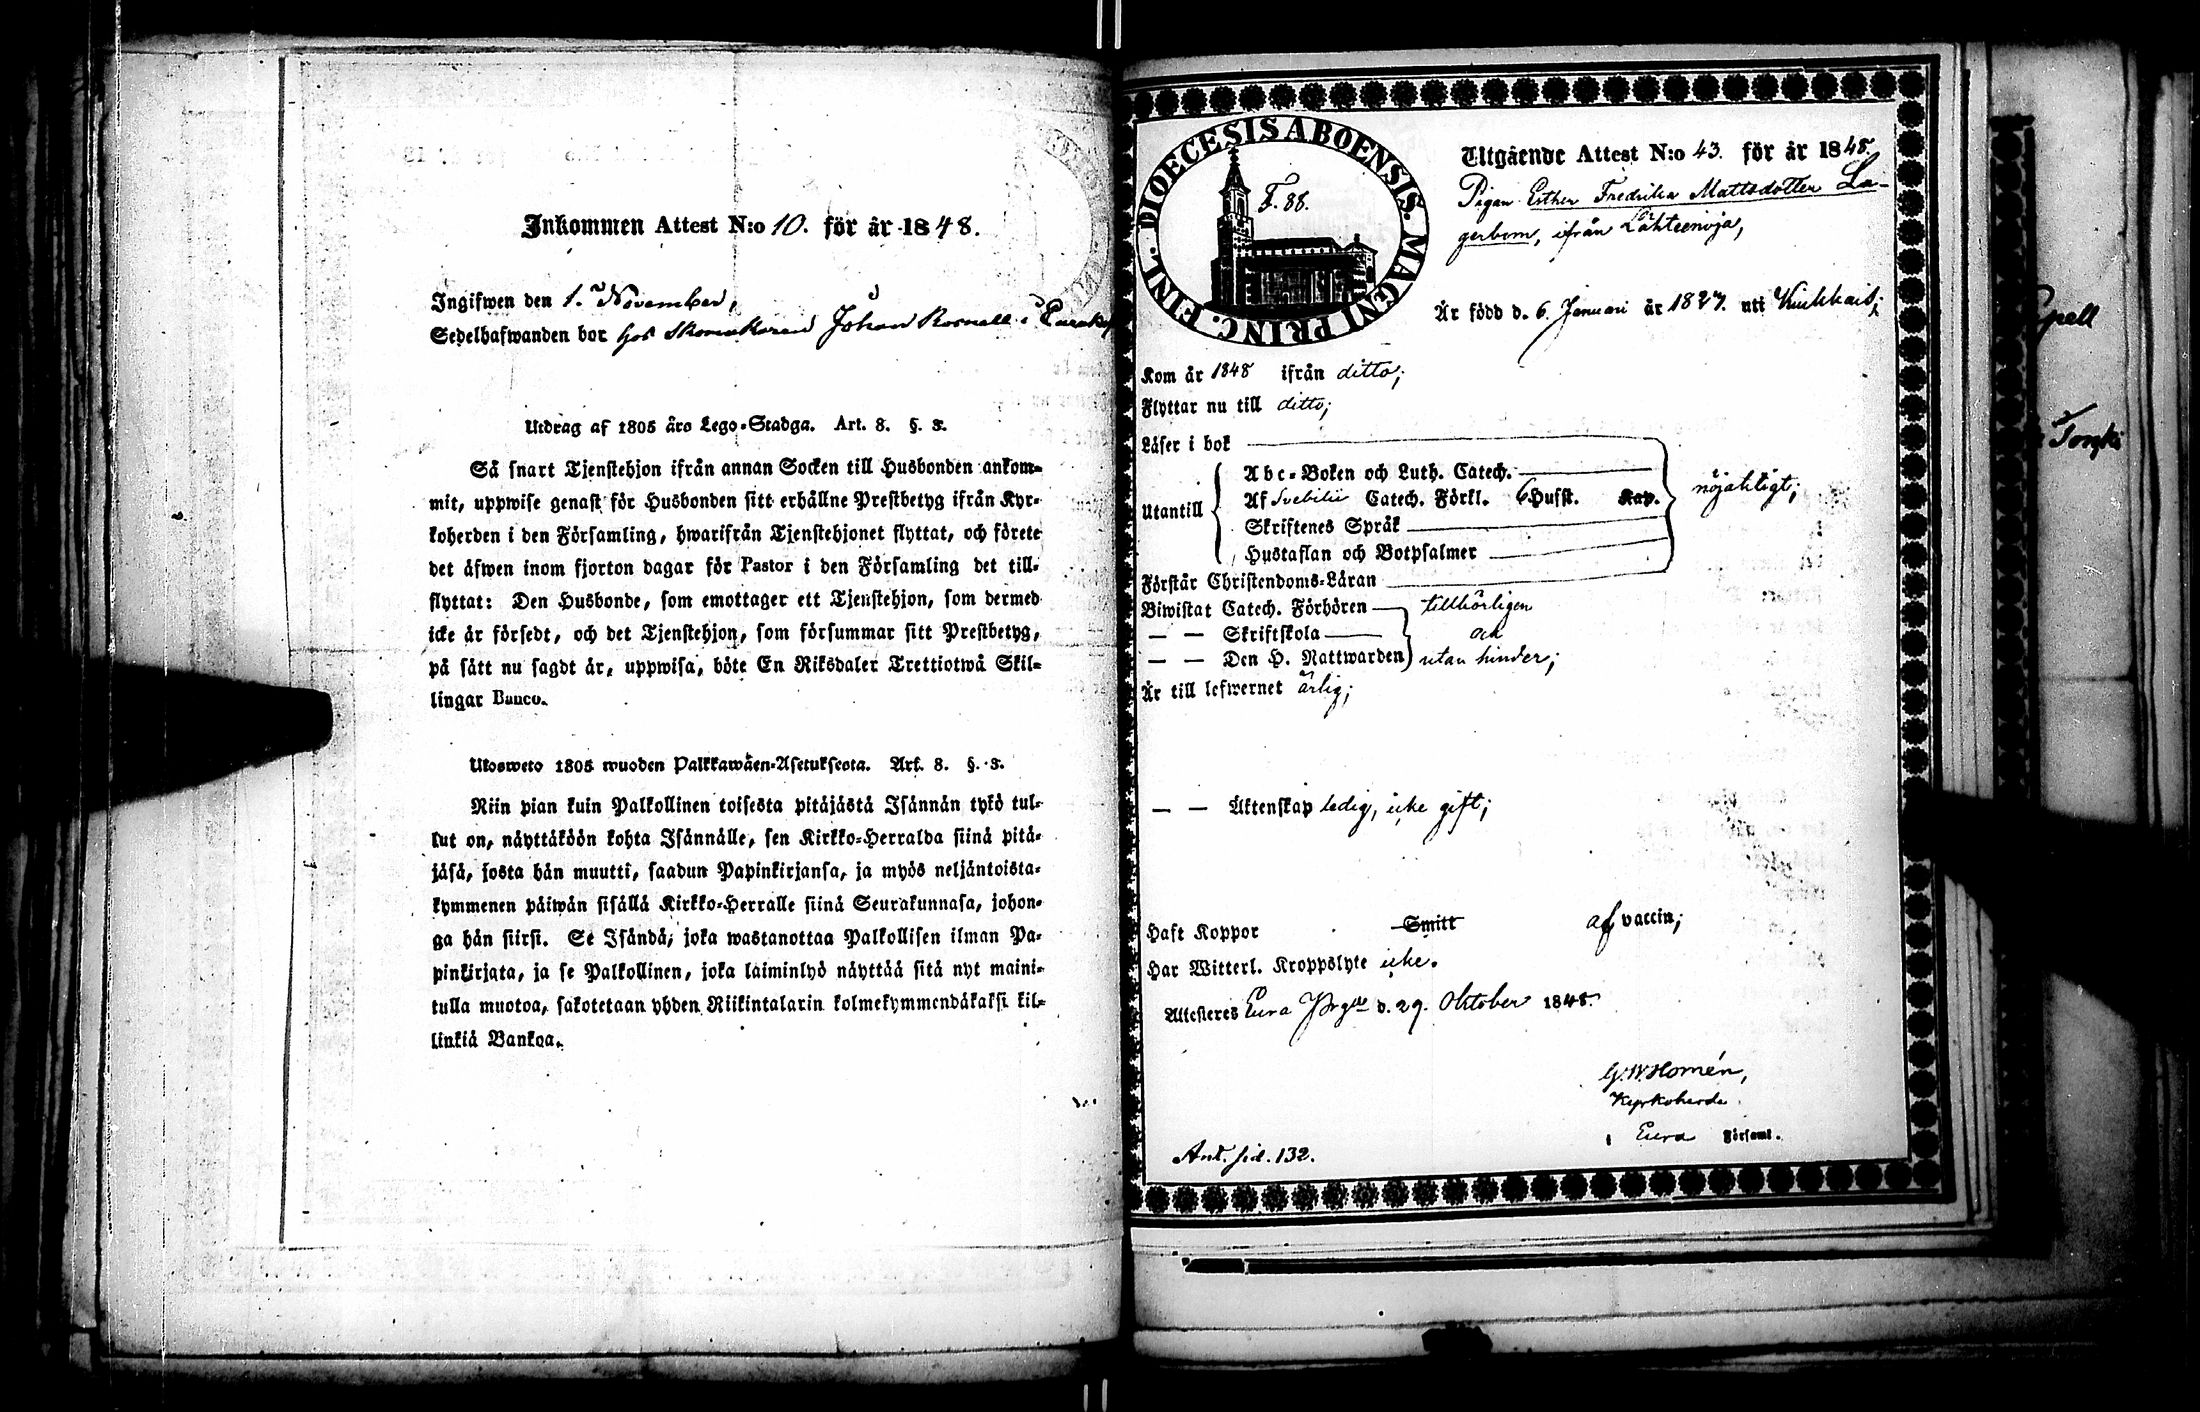 Inkommen Attest N:o 10. för år 1848.
Ingifwen den 1. November,
Sedelhafwanden bor hos Skomakaren Johan Rosnell i
Utdrag af 1805 års Lego-Stadga. Art. 8. §. 3.
Så snart Tjenstehjon ifrån annan Socken till Husbonden ankom-
mit, uppwise genast för Husbonden sitt erhållne Prestbetyg ifrån Kyr-
koherden i den Församling, hwarifrån Tjenstehjonet flyttat, och förete
det äfwen inom fjorton dagar för Pastor i den Församling det till-
flyttat: Den Husbonde, som emottager ett Tjenstehjon, som dermed
icke är försedt, och det Tjenstehjon, som försummar sitt Prestbetyg,
på sätt nu sagdt är, uppwisa, böte En Riksdaler Trettiotwå Skil-
lingar Banco.
Ulosweto 1805 wuoden Palkkawäen-Asetuksesta. Art. 8. §. 3.
Niin pian kuin Palkollinen toisesta pitäjästä Isännän tykö tul-
lut on, näyttäköön kohta Isännälle, sen Kirkko-Herralda siinä pitä-
jäsä, josta hän muutti, saadun Papinkirjansa, ja myös neljäntoista-
kymmenen päiwän sisällä Kirkko-Herralle siinä Seurakunnasa, johon-
ga hän siirsi. Se Isändä, joka wastanottaa Palkollisen ilman Pa-
pinkirjata, ja se Palkollinen, joka laiminlyö näyttää sitä nyt maini-
tulla muotoa, sakotetaan yhden Riikintalarin kolmekymmendäkaksi kil-
linkiä Bankoa.
DIOECESIS ABOENSIS. MAGNI PRINC. FINL.
F. 88.
Utgående Attest N:o 43. för år 1848.
Pigan Esther Fredrika Mattsdotter La-
gerbom, ifrån Lähteenoja,
Är född d. 6. Januari år 1827. uti
Kom år 1848 ifrån ditto;
Flyttar nu till ditto;
Läser i bok
Utantill
Abc-Boken och Luth. Catech.
Af Svebilii Catech. Förkl. 6 Hufst. Kap.
Skriftenes Språk
Hustaflan och Botpsalmer
nöjaktigt;
Förstår Christendoms-Läran
Biwistat Catech. Förhören
— — Skriftskola
— — Den H. Nattwarden
tillbörligen
och
utan hinder;
Är till lefwernet ärlig;
— — Äktenskap ledig, icke gift;
Haft Koppor Smitt af vaccin;
Har Witterl. Kroppslyte icke.
Attesteres Eura Prgd d. 29. Oktober 1848.
G. W. Homén,
Kyrkoherde
i Eura Församl.
Ant. sid. 132.